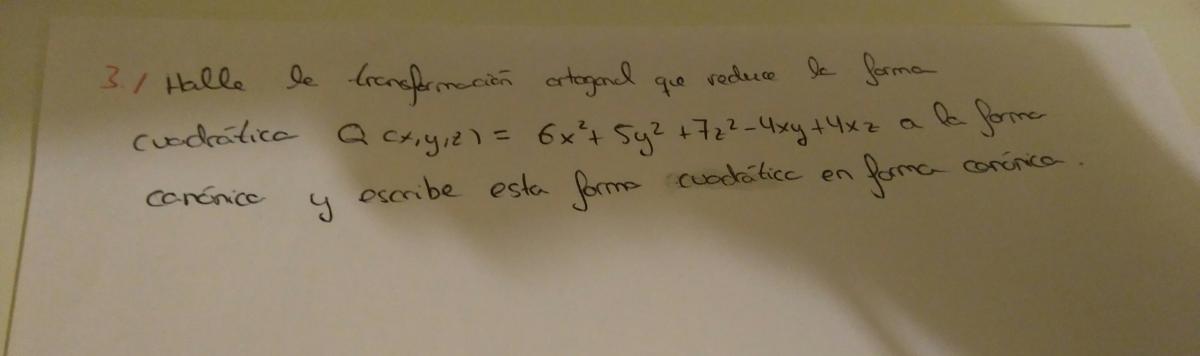 3./ Halle la transformación ortogonal que reduce la forma
cuadrática Q(x,y,z) = 6x²+5y²+7z²-4xy+4xz a la forma
canónica y escribe esta forma cuadrática en forma canónica.